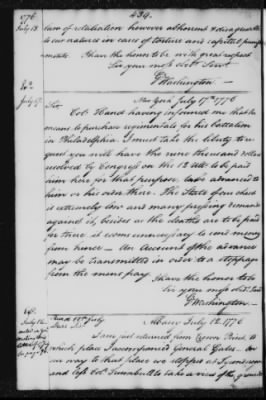 1776
July 15
434.
law of retaliation however abhorrent & disagreeable
to our natures in cases of torture and capital punish-
ments. I have the honor to be with great respect
Sir your most obdt. Servt.
G Washington.—
July 17.
New York July 17th. 1776
Sir
Colo. Hand having informed me that he
means to purchase regimentals for his Battalion
in Philadelphia. I must take the liberty to re-
quest you will have the nine thousand dollars
resolved by Congress on the to be paid
him here for that purpose advanced to
him or his order there. The State of our chest
is extremely low and many pressing demands
against it, besides as the cloaths are to be paid
for there it seems unnecessary to send money
from hence— An Account of the advance
may be transmitted in order to a stoppage
from the mens pay.
I have the honor to be
Sir your most obdt. Servt.
G Washington.—
July 12.
Read 19th. July
Albany July 12. 1776
Dear Sir
I am just returned from Crown Point to
which place I accompanied General Gates. In
our way to that place we stopped at Tyconderoga
and left Colo. Trumbull to take a view of the grounds